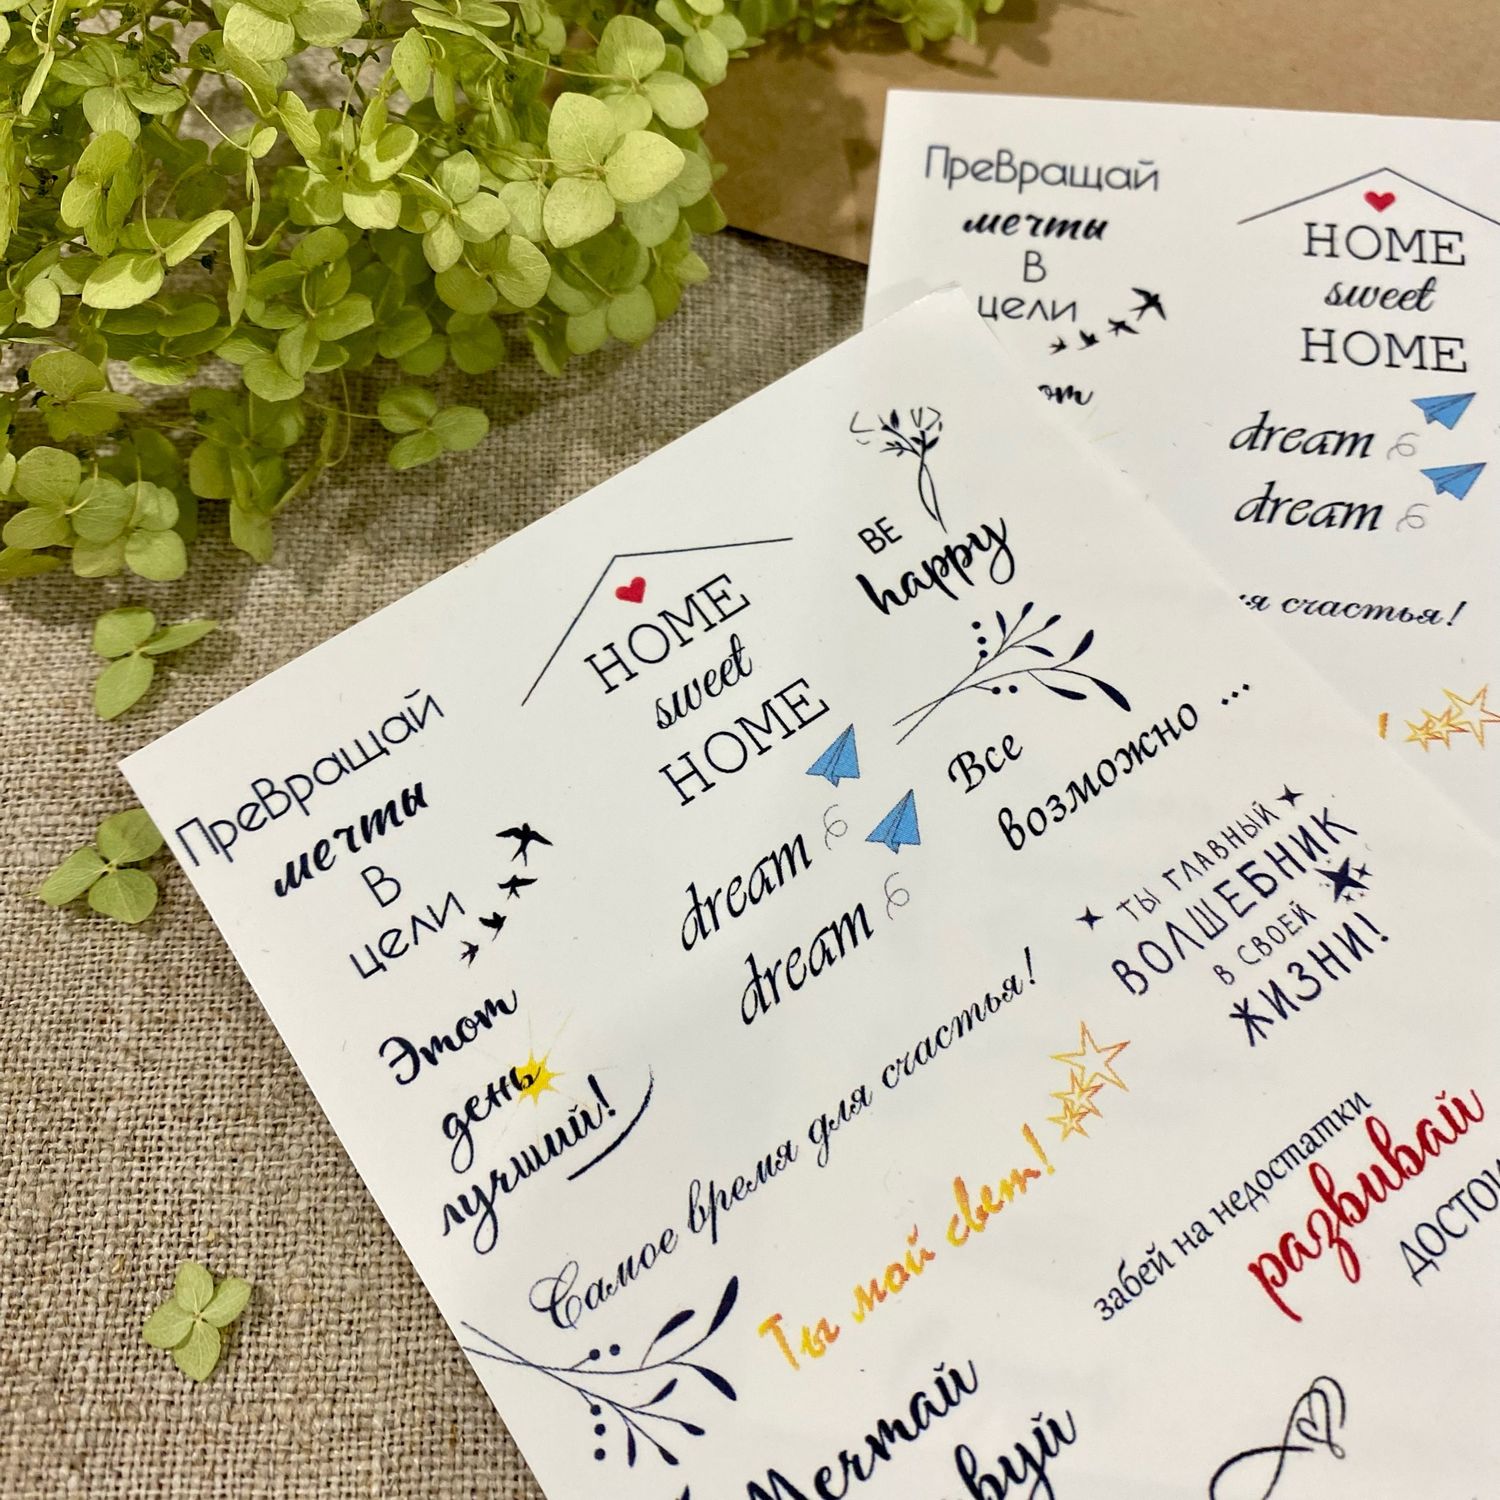 ПреВращай
мечты
В
цели
HOME
sweet
HOME
BE
happy
dream
dream
Все
возможно ...
Этот
день
лучший!
Самое время для счастья!
ТЫ ГЛАВНЫЙ
ВОЛШЕБНИК
В СВОЕЙ
ЖИЗНИ!
Ты мой свет!
забей на недостатки
развивай
Мечтай
ПреВращай
мечты
В
цели
HOME
sweet
HOME
dream
dream
счастья!